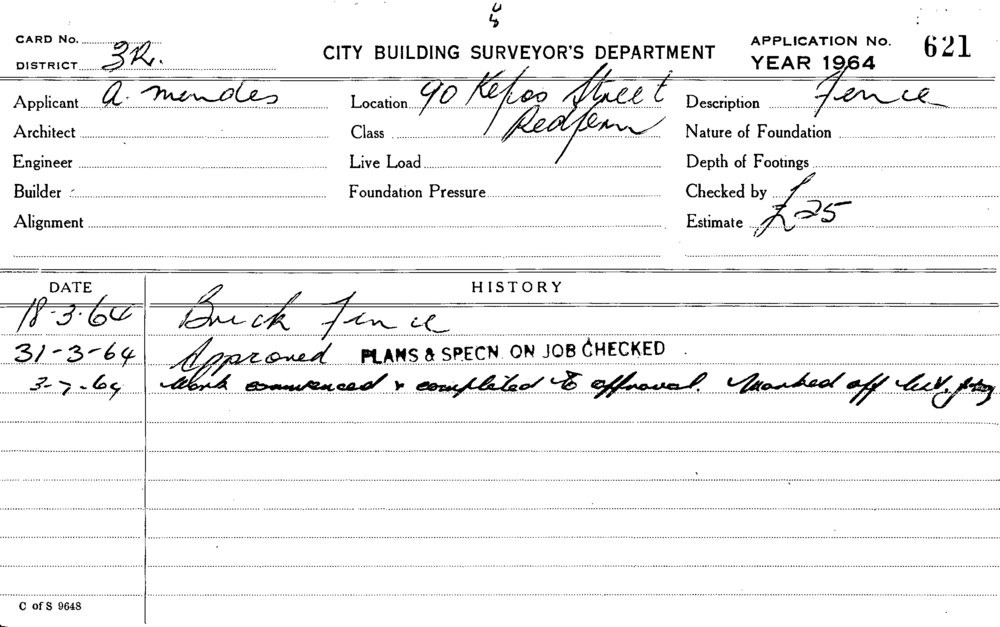 CARD No.
DISTRICT 3R.
CITY BUILDING SURVEYOR'S DEPARTMENT
APPLICATION No. 621
YEAR 1964
Applicant A. Mendes
Location 90 Kepos Street
Redfern
Description Fence
Architect
Class
Nature of Foundation
Engineer
Live Load
Depth of Footings
Builder
Foundation Pressure
Checked by
Alignment
Estimate £25
DATE HISTORY
18-3-64 Brick Fence
31-3-64 Approved PLANS & SPECN. ON JOB CHECKED
3-7-64 Work commenced & completed to approval. Marked off
C of S 9648